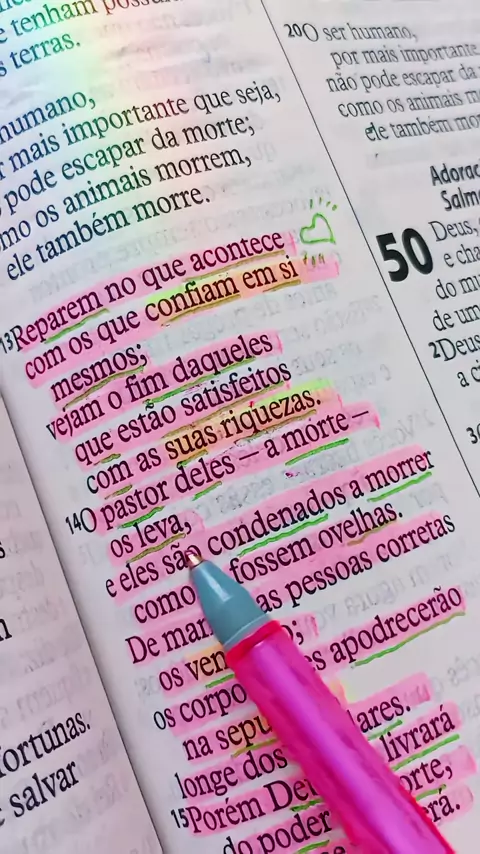 e tenham
s terras.
humano,
mais importante que seja,
pode escapar da morte;
mo os animais morrem,
ele também morre.
13Reparem no que acontece
com os que confiam em si
mesmos;
vejam o fim daqueles
que estão satisfeitos
com as suas riquezas.
14O pastor deles — a morte —
os leva,
e eles são condenados a morrer
como fossem ovelhas.
De as pessoas corretas
os
os apodrecerão
na
longe dos
15Porém livrará
do poder
fortunas.
salvar
20O ser humano,
por mais importante
não pode escapar da
como os animais
ele também
50
Deus,
e
do
de
2Deus
a